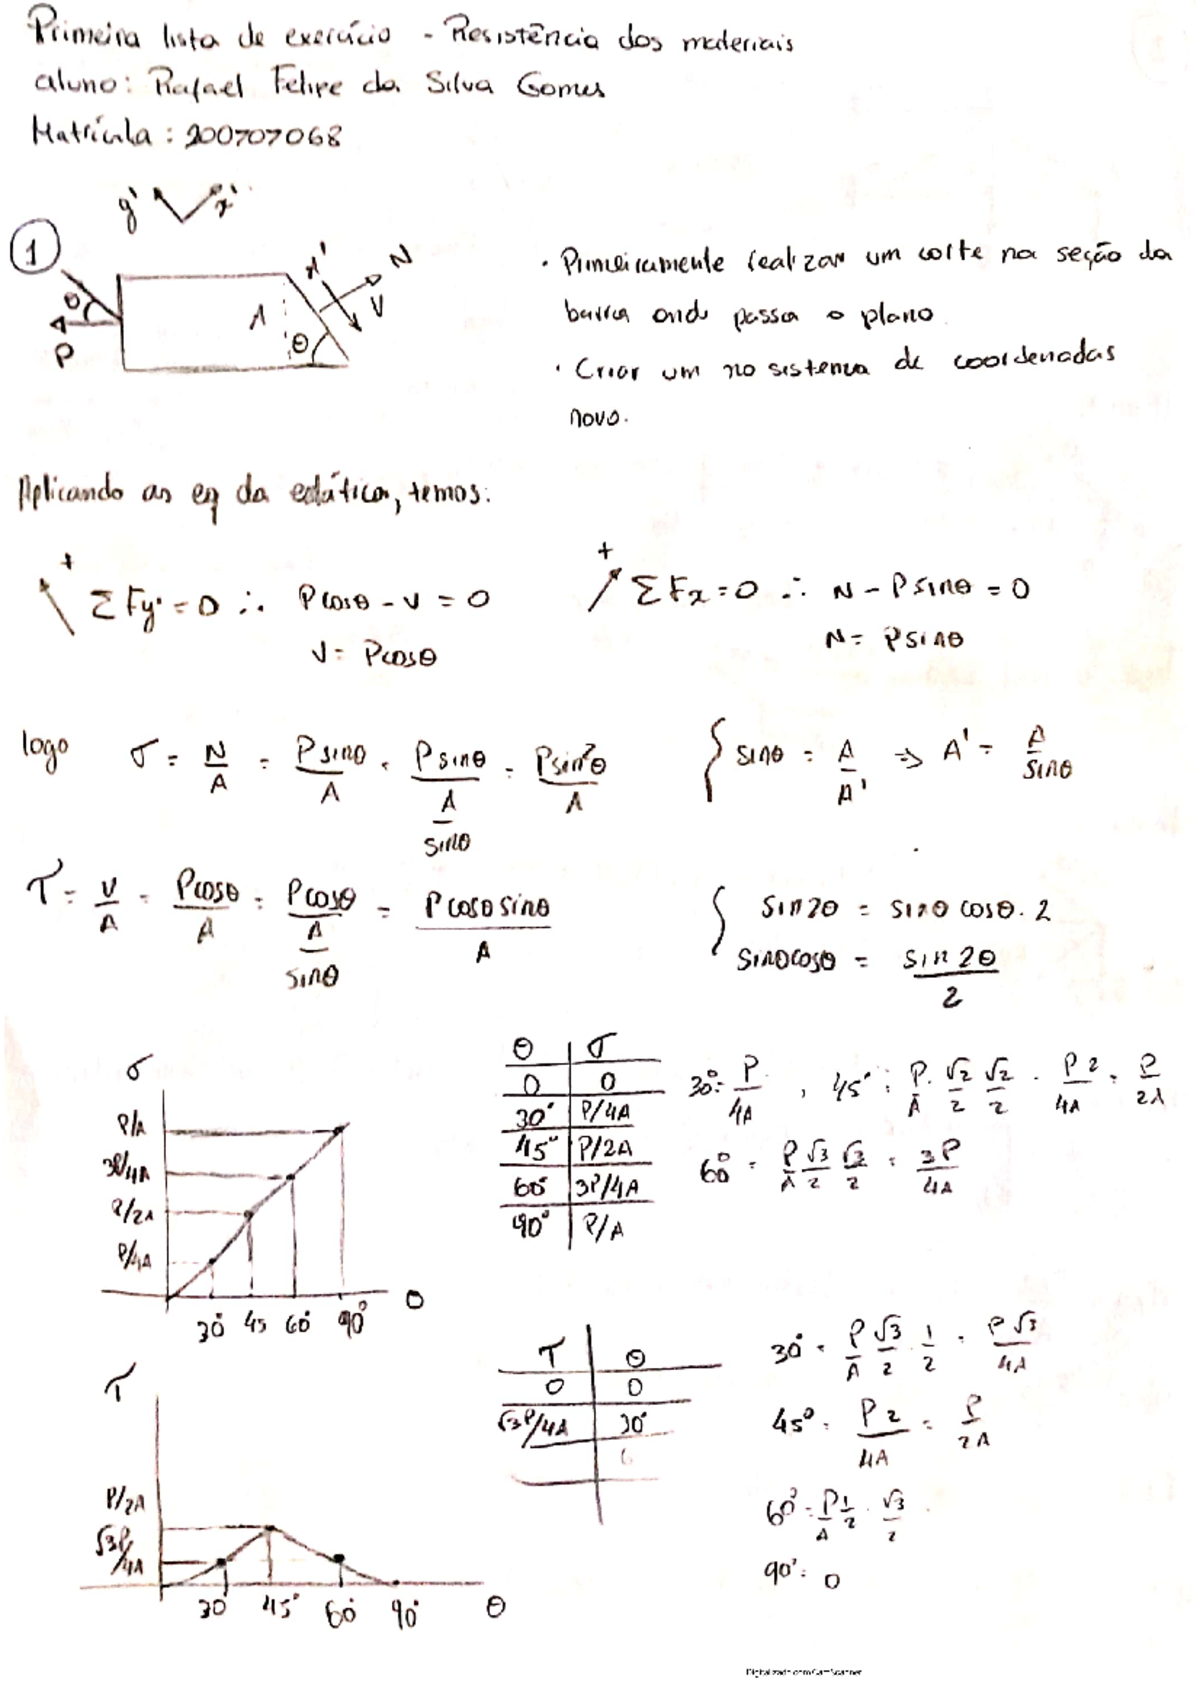 Primeira lista de exercício - Resistência dos materiais
aluno: Rafael Felipe da Silva Gomes
Matrícula: 200707068
y' x'
1
θ P A θ A' N V
· Primeiramente realizar um corte na seção da
barra onde passa o plano.
· Criar um no sistema de coordenadas
novo.
Aplicando as eq da estática, temos:
+ ΣFy' = 0 ∴ Pcosθ - V = 0
V = Pcosθ
+ ΣFx = 0 ∴ N - Psinθ = 0
N = Psinθ
logo σ = N/A = Psinθ/A = Psinθ/(A/sinθ) = Psin²θ/A
{ sinθ = A/A' => A' = A/sinθ
τ = V/A = Pcosθ/A = Pcosθ/(A/sinθ) = Pcosθsinθ/A
{ sin2θ = sinθcosθ.2
sinθcosθ = sin2θ/2
σ
P/A
3P/4A
P/2A
P/4A
30° 45 60° 90° θ
θ | σ
0 | 0
30° | P/4A
45° | P/2A
60° | 3P/4A
90° | P/A
30° = P/4A , 45° = P/A . √2/2 √2/2 = P2/4A = P/2A
60° = P/A √3/2 √3/2 = 3P/4A
τ
P/2A
√3P/4A
30 45° 60° 90° θ
τ | θ
0 | 0
√3P/4A | 30°
30° = P/A √3/2 . 1/2 = P√3/4A
45° = P2/4A = P/2A
60° = P/A 1/2 . √3/2
90° = 0
Digitalizado com CamScanner